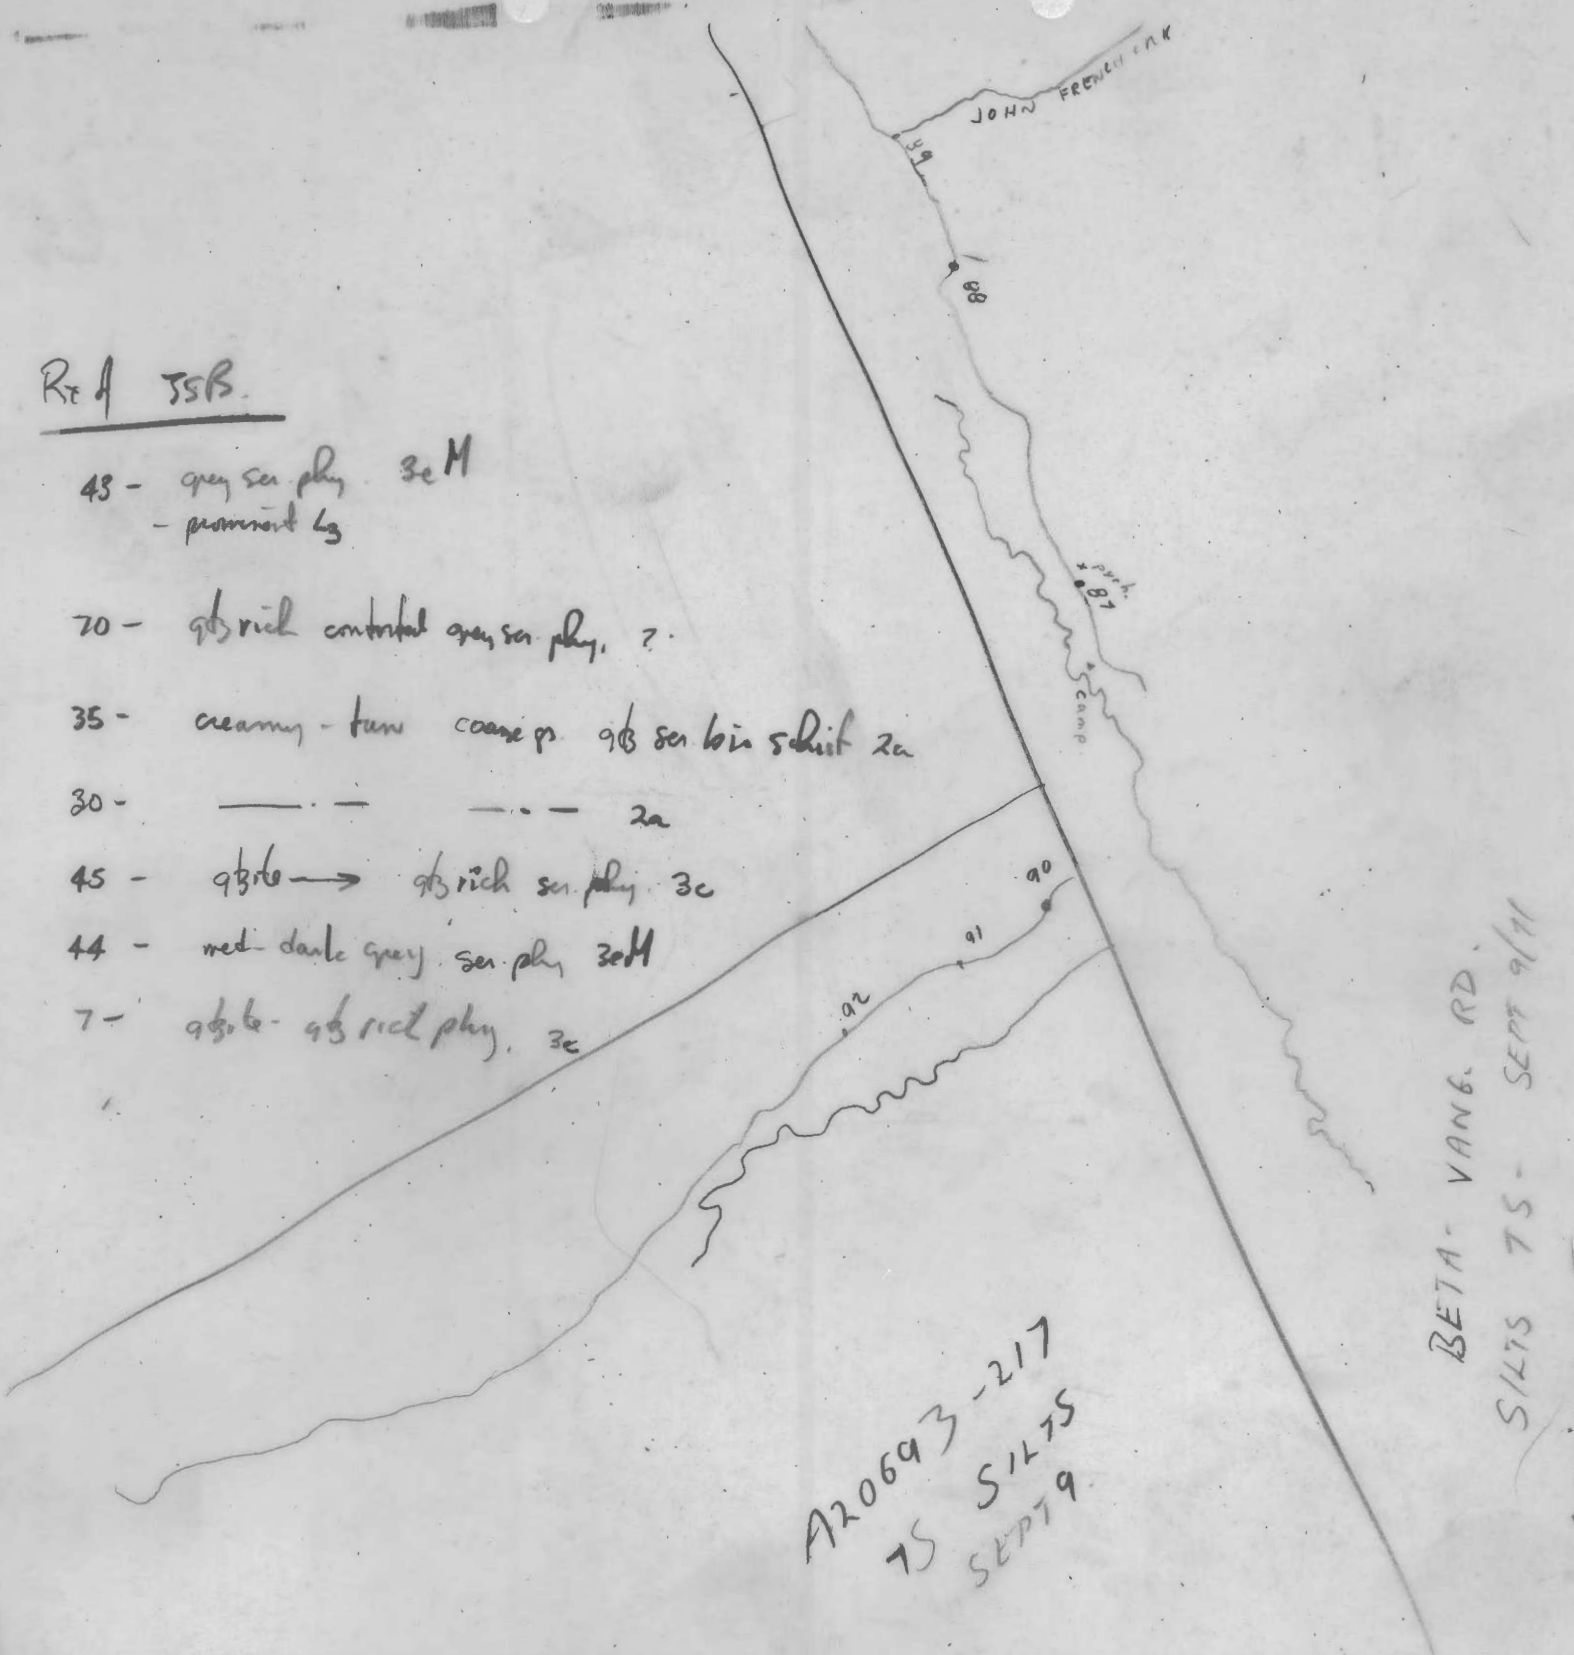 JOHN FRENCH CRK
89
88
pyrrh.
x 87
camp
JSB.
43 - grey ser phy. 3e M
- prominent L3
70 - qtz rich contorted grey ser phy. ?
35 - creamy - tan coarse gr qtz ser bio schist 2a
30 - —— · — — · — 2a
45 - qtzite → qtz rich ser. phy. 3c
44 - med - dark grey ser. phy 3eM
7 - qtzite - qtz rich phy. 3c
90
91
92
A20693-217
TS SILTS
SEPT 9
BETA - VANG. RD.
SILTS TS - SEPT 9/71